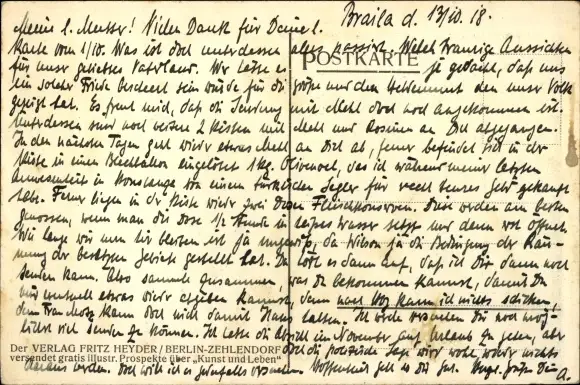 Braila d. 13/10. 18.
Meine l. Mutter! Vielen Dank für Deine l.
Karte vom 1/10. Was ist doch unterdessen alles passiert. Welch traurige Aussichten
für unser geliebtes Vaterland. Wer hätte es je gedacht, daß uns
ein solcher Friede beschert sein würde für die größe und den Heldenmut den unser Volk
gezeigt hat. Es freut mich, daß die Sendung mit Mehl doch noch angekommen ist.
Unterdessen sind noch weitere 2 Kisten mit Mehl und Rosinen an Dich abgegangen.
In den nächsten Tagen geht wieder etwas Mehl an Dich ab, ferner befindet sich in der
Kiste in einen Blechballon eingelötet 1 kg. Olivenoel, das ich während meiner letzten
Anwesenheit in Konstanza von einem türkischen Segler für recht teures Geld gekauft
habe. Ferner liegen in der Kiste wieder zwei Dosen Fleischkonserven. Diese werden am besten
genossen, wenn man die Dose 1/2 Stunde in heißes Wasser setzt und dann erst öffnet.
Wie lange wir nun hier bleiben ist ja ungewiß, da Wilson ja die Bedingung der Räu-
mung der besetzten Gebiete gestellt hat. Da käme es dann auf, daß ich Dir dann noch
senden kann. Also sammle zusammen, was Du bekommen kannst, damit Du
uns eventuell etwas wieder abgeben kannst, denn nach Hbg kann ich nichts schicken,
dem Franchotz kann doch mich damit Hans halten. Ich werde versuchen Dir noch mög-
lichst viel senden zu können. Ich hatte die Absicht im November auf Urlaub zu gehen, aber
doch die politische Lage wird wohl wieder nichts
daraus werden. Doch will ich es jedenfalls versuchen. Hoffentlich geht es Dir gut. Herzl. Grüße Dein A.
POSTKARTE
Der VERLAG FRITZ HEYDER / BERLIN-ZEHLENDORF
versendet gratis illustr. Prospekte über „Kunst und Leben"